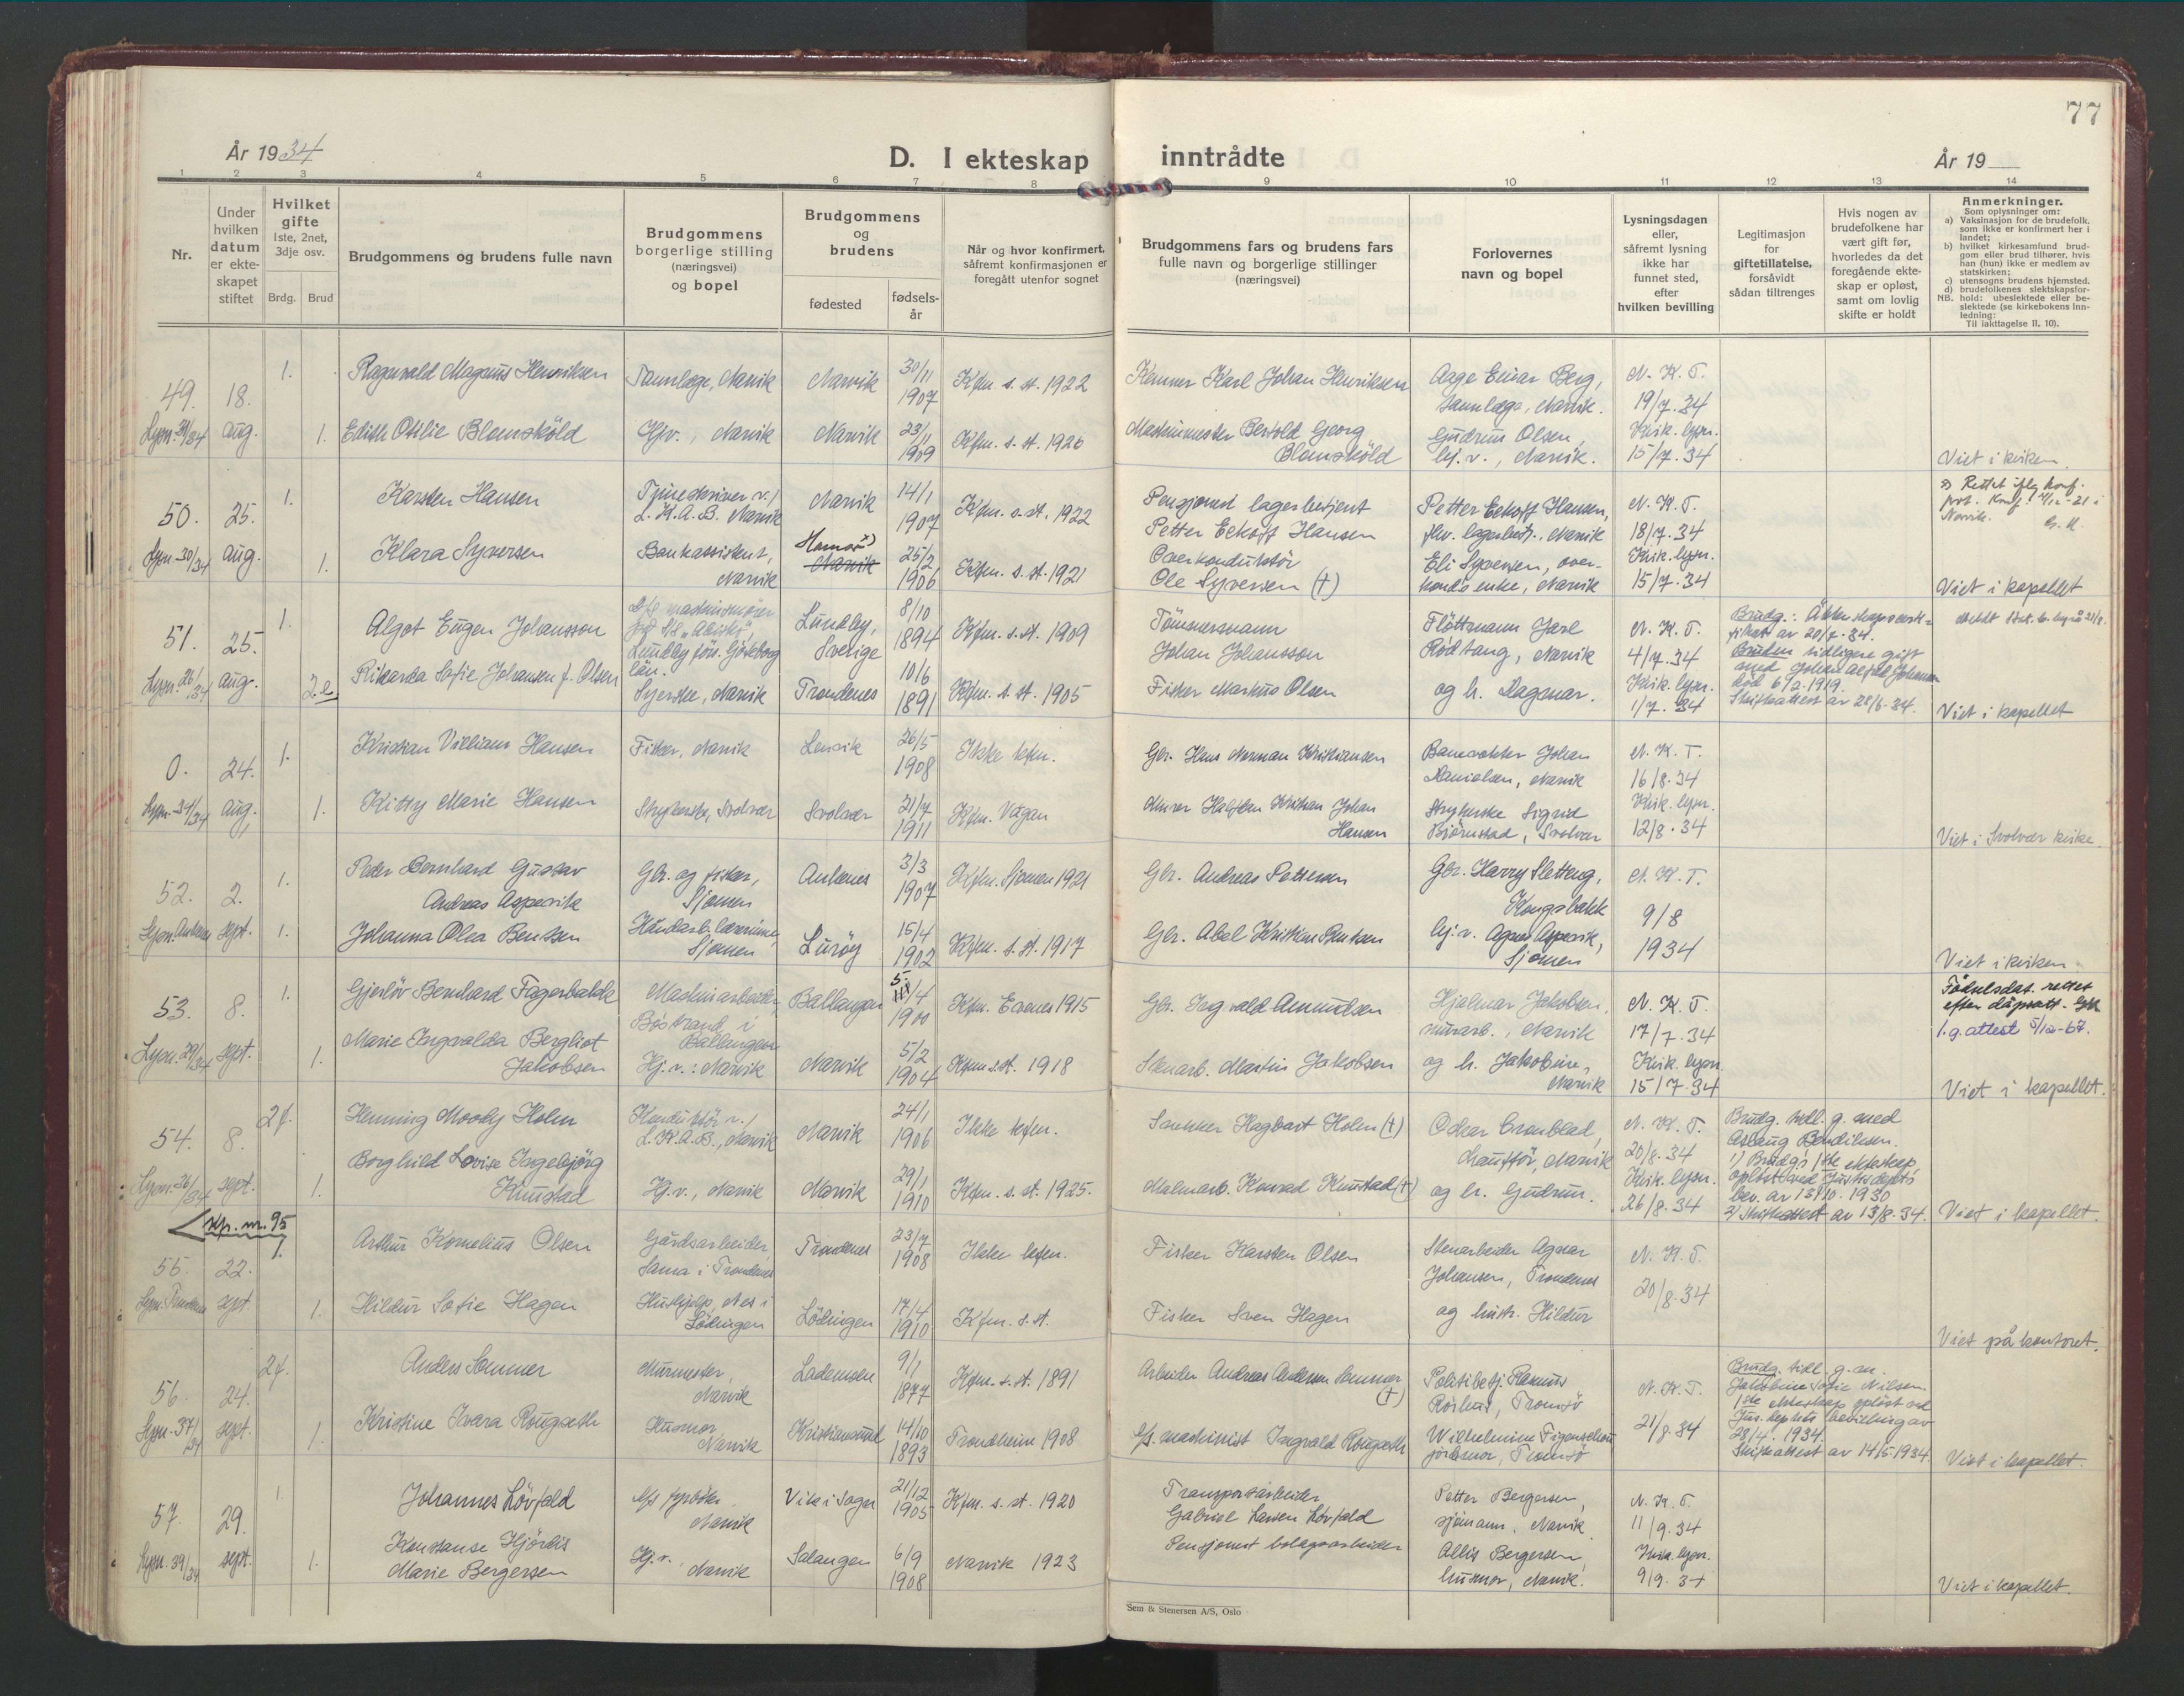 77
År 1934
D. I ekteskap inntrådte
År 19
1 2 3 4 5 6 7 8 9 10 11 12 13 14
Nr.
Under hvilken datum er ekteskapet stiftet
Hvilket gifte
1ste, 2net, 3dje osv.
Brdg. Brud
Brudgommens og brudens fulle navn
Brudgommens borgerlige stilling (næringsvei) og bopel
Brudgommens og brudens
fødested
fødselsår
Når og hvor konfirmert, såfremt konfirmasjonen er foregått utenfor sognet
Brudgommens fars og brudens fars fulle navn og borgerlige stillinger (næringsvei)
Forlovernes navn og bopel
Lysningsdagen eller, såfremt lysning ikke har funnet sted, efter hvilken bevilling
Legitimasjon for giftetillatelse, forsåvidt sådan tiltrenges
Hvis nogen av brudefolkene har vært gift før, hvorledes da det foregående ekteskap er opløst, samt om lovlig skifte er holdt
Anmerkninger.
Som oplysninger om:
a) Vaksinasjon for de brudefolk, som ikke er konfirmert her i landet;
b) hvilket kirkesamfund brudgom eller brud tilhører, hvis han (hun) ikke er medlem av statskirken;
c) utensogns brudens hjemsted.
d) brudefolkenes slektskapsforhold: ubeslektede eller beslektede (se kirkebokens innledning:
NB.
Til iakttagelse II, 10).
49. 18. aug. Lysn. 31/34
1. Ragnvald Magnus Henriksen Tannlæge, Narvik Narvik 30/11 1907 Kfm. s. st. 1922 Kemner Karl Johan Henriksen Aage Einar Berg, tannlæge, Narvik. N. K. T. 19/7.34
1. Edith Otilie Blomsköld Hjv., Narvik Narvik 23/11 1909 Kfm. s. st. 1926 Maskinmester Bertold Georg Blomsköld Gudrun Olsen, hj. v., Narvik. Kirk. lysn. 15/7.34 Viet i kirken.
50. 25. aug. Lysn. 30/34
1. Karsten Hansen Tjineskriver v./ L.K.A.B. Narvik Narvik 14/1 1907 Kfm. s. st. 1922 Pensjonert lagerbetjent Petter Eckoff Hansen Petter Eckoff Hansen, fhv. lagerbetj., Narvik N. K. T. 18/7.34
1. Klara Syversen Bankassistent, Narvik Narvik 25/2 1906 Kfm. s. st. 1921 Overkonduktör Ole Syversen (†) Eli Syversen, overkonds enke, Narvik Kirk. lysn. 15/7.34 Viet i kapellet
51. 25. aug. Lysn. 26/34
1. Algot Eugen Johansson Lundby, Sverige 8/10 1894 Kfm. s. st. 1909 Tömmermann Johan Johansson Flöttmann Jarl Rödtang, Narvik N. K. T. 4/7.34
2.e. Rikarda Sofie Johansen f. Olsen Syerske, Narvik Trondenes 10/6 1891 Kfm. s. st. 1905 Fisker Markus Olsen og h. Dagmar. Kirk. lysn. 1/7.34
Bruden tidligere gift med Johan Johansen död 6/2.1919. Skifteattest av 28/6.34. Viet i kapellet
0. 24. aug. Lysn. 34/34
1. Kristian Villiam Hansen Fisker, Narvik Lenvik 26/5 1908 Ikke kfm. Gbr. Hans Norman Kristiansen Banevokter Johan Danielsen, Narvik N. K. T. 16/8.34
1. Kitty Marie Hansen Strykerske, Svolvær Svolvær 21/7 1911 Kfm. Vågan Murer Halfdan Kristian Johan Hansen Strykerske Sigrid Björnstad, Svolvær Kirk. lysn. 12/8.34 Viet i Svolvær kirke.
52. 2. sept. Lysn. Ankenes
1. Peder Bernhard Gustav Andreas Aspevik Gbr. og fisker, Sjomen Ankenes 3/3 1907 Kfm. Sjomen 1921 Gbr. Andreas Pettersen Gbr. Harry Sletteng, Kongsbakk N. K. T. 9/8 1934
1. Johanna Olea Bentsen Håndarb. lærerinne, Sjomen Luröy 15/4 1902 Kfm. s. st. 1917 Gbr. Abel Kristian Bentsen hj. v. Agnes Aspevik, Sjomen Viet i kirken.
53. 8. sept. Lysn. 29/34
1. Gjerlöv Bernhard Fagerbakk Maskinarbeider, Böstrand i Ballangen Ballangen 5/4 1900 Kfm. Evenes 1915 Gbr. Ingvald Amundsen Hjalmar Jakobsen, murarb., Narvik N. K. T. 17/7.34 Födselsdat. rettet efter dåpsatt.
1.g. attest 5/12-67.
1. Marie Ingvalda Bergliot Jakobsen Hj. v.: Narvik Narvik 5/2 1904 Kfm s. st. 1918 Stenarb. Martin Jakobsen og h. Jakobine, Narvik Kirk. lysn. 15/7.34 Viet i kapellet.
54. 8. sept. Lysn. 36/34
2f. Henning Moody Holm Konduktör v./ L.K.A.B., Narvik Narvik 24/1 1906 Ikke kfm. Snekker Hagbart Holm (†) Oskar Cronblad, Narvik N. K. T. 20/8.34
1. Borghild Lovise Ingebjörg Knustad Hj. v., Narvik Narvik 29/1 1910 Kfm. s. st. 1925. Malmarb. Konrad Knustad (†) og h. Gudrun. Kirk. lysn. 26/8.34
Brudg. tidl. g. med Aslaug Bendiksen. 1) Brudg's 1ste ekteskap oplöst ved Justisdepts bev. av 13/10.1930 2) Skifteattest av 13/8.34. Viet i kapellet.
nr. 95
55. 22. sept
1. Arthur Kornelius Olsen Gårdsarbeider, Sama i Trondenes Trondenes 23/7 1908 Ikke kfm. Fisker Karsten Olsen Stenarbeider Agnar Johansen, Trondenes N. K. T. 20/8.34
1. Hildur Sofie Hagen Hushjelp, Nes i Lödingen Lödingen 17/4 1910 Kfm. s. st. Fisker Sven Hagen og hustr. Hildur Viet på kontoret.
56. 24. sept. Lysn. 37/34
2f. Anders Sommer Murmester, Narvik Lademoen 9/1 1877 Kfm. s. st. 1891 Arbeider Andreas Andersen Sommer (†) Politibetj. Rasmus Tromsö N. K. T. 21/8.34
1. Kristine Ivara Rougseth Husmor Narvik Kristiansund 14/10 1893 Trondheim 1908 maskinist Ingvald Rougseth Wilhelmine Figenschou jordmor, Tromsö
Brudg. tidl. g. m. Jakobine Sofie Nilsen. 1ste ekteskap oplöst ved Jus. depts bevilling av 28/4.1934. Skifteattest av 14/5.1934. Viet i kapellet.
57. 29. sept. Lysn. 39/34
1. Johannes Lövfald fyrböter, Narvik Vik i Sogn 21/12 1905 Kfm. s. st. 1920 Transportarbeider Gabriel Larsen Lövfald Petter Bergersen, sjömann, Narvik N. K. T. 11/9.34
1. Konstanse Hjördis Marie Bergersen Hj. v., Narvik Salangen 6/9 1908 Narvik 1923 Pensjonert bolagsarbeider Allis Bergersen, husmor, Narvik. Kirk. lysn. 9/9.34 Viet i kapellet.
Sem & Stenersen A/S, Oslo